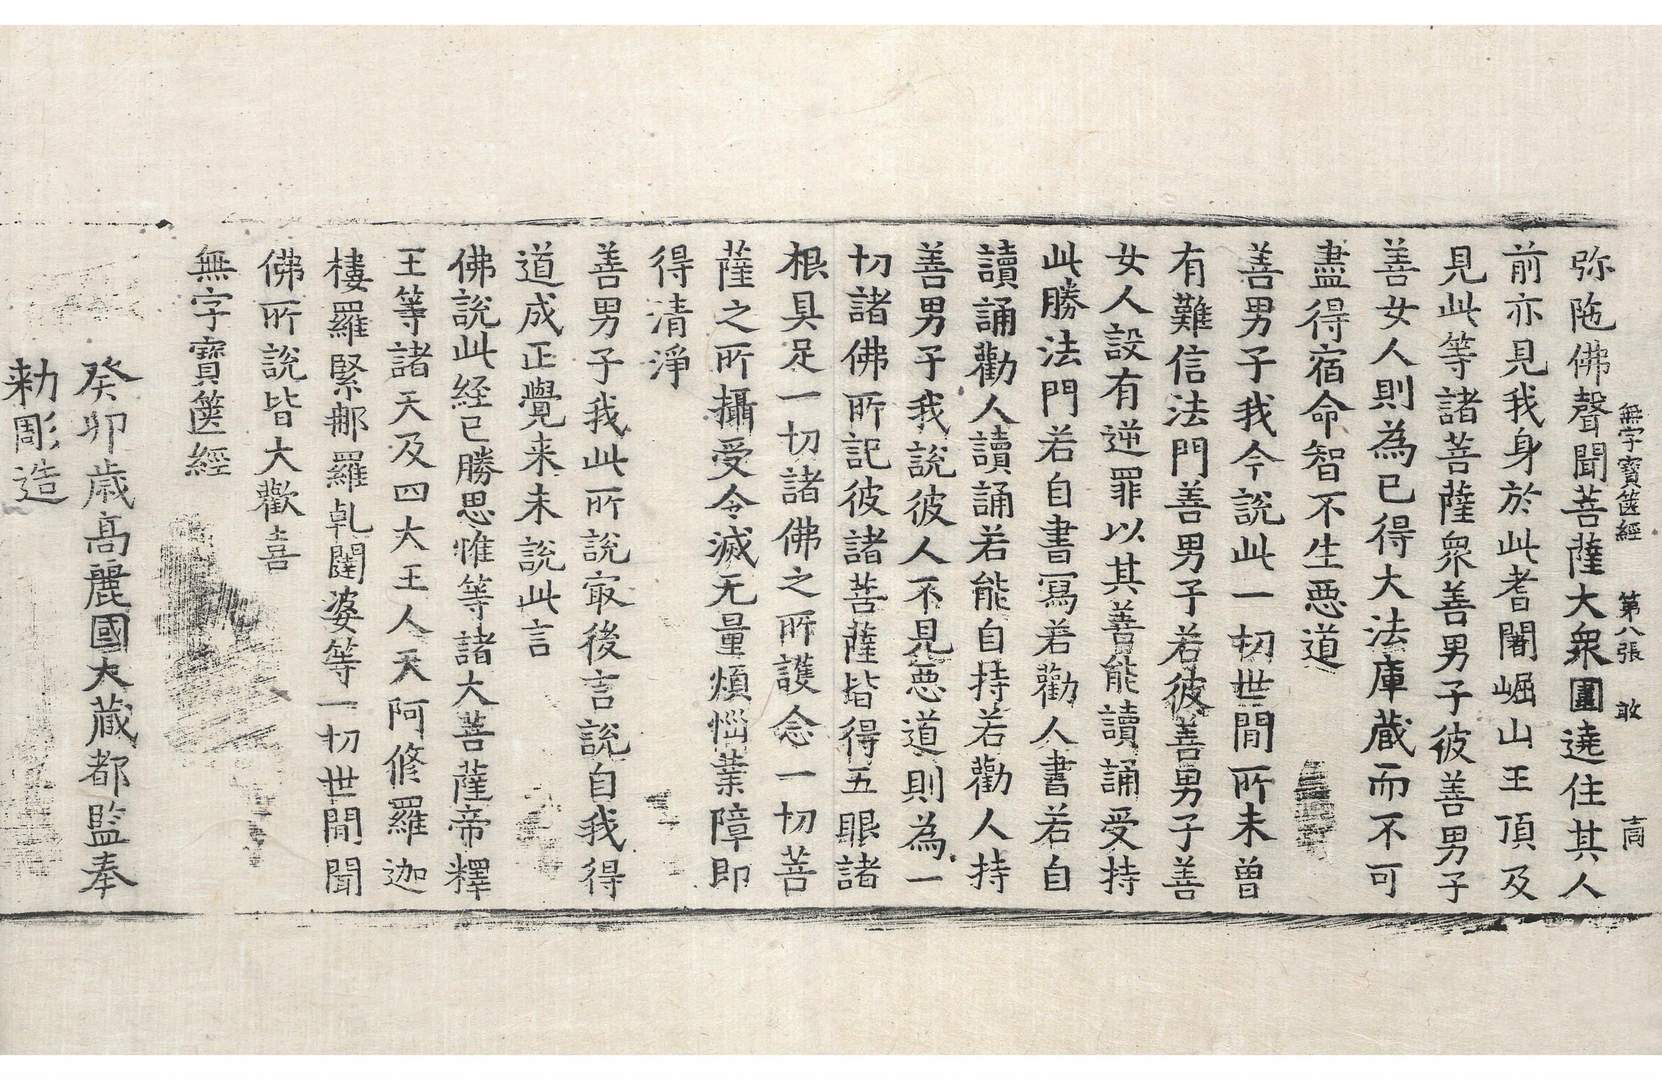 無字寶篋經　第八張　敢
弥陁佛聲聞菩薩大衆圍遶住其人
前亦見我身於此耆闍崛山王頂及
見此等諸菩薩衆善男子彼善男子
善女人則為已得大法庫藏而不可
盡得宿命智不生惡道
善男子我今說此一切世間所未曾
有難信法門善男子若彼善男子善
女人設有逆罪以其善能讀誦受持
此勝法門若自書寫若勸人書若自
讀誦勸人讀誦若能自持若勸人持
善男子我說彼人不見惡道則為一
切諸佛所記彼諸菩薩皆得五眼諸
根具足一切諸佛之所護念一切菩
薩之所攝受令滅无量煩惱業障即
得清淨
善男子我此所說㝡後言說自我得
道成正覺来未說此言
佛說此経已勝思惟等諸大菩薩帝釋
王等諸天及四大王人天阿修羅迦
樓羅緊那羅乹闥婆等一切世間聞
佛所說皆大歡喜
無字寶篋經
癸卯歳高麗國大藏都監奉
勅彫造